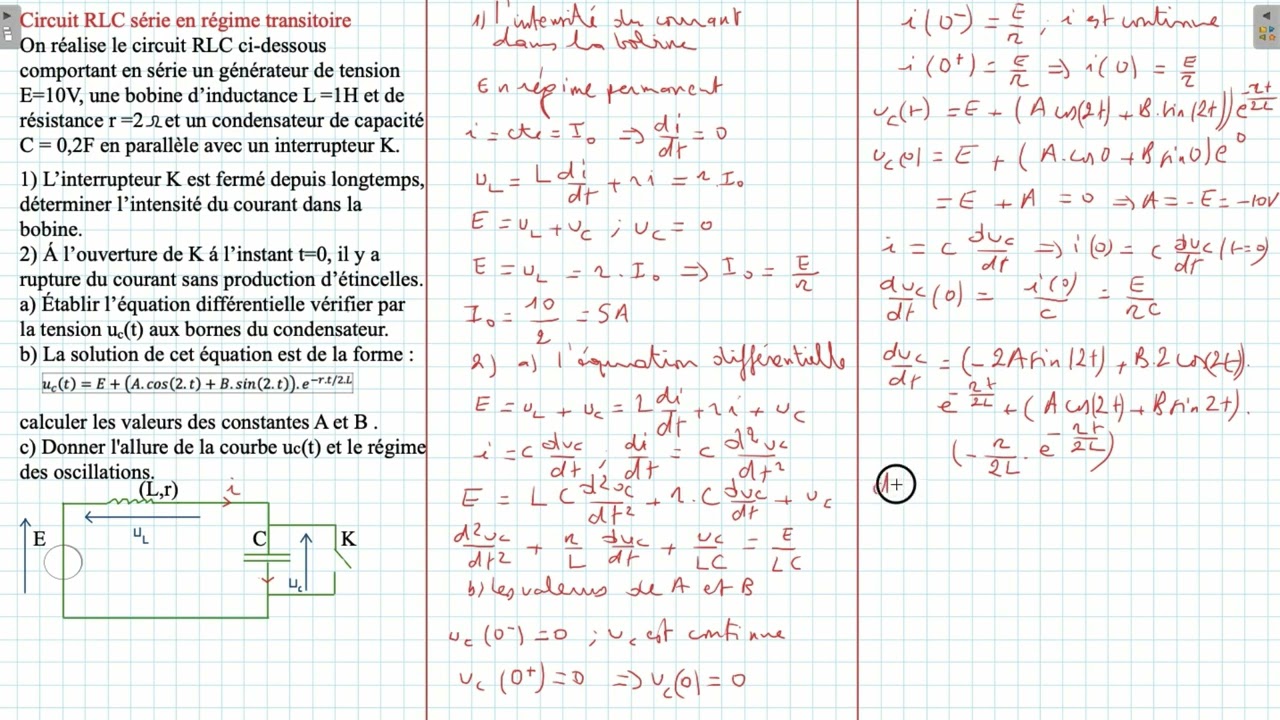 Circuit RLC série en régime transitoire
On réalise le circuit RLC ci-dessous
comportant en série un générateur de tension
E=10V, une bobine d’inductance L =1H et de
résistance r =2 Ω et un condensateur de capacité
C = 0,2F en parallèle avec un interrupteur K.
1) L’interrupteur K est fermé depuis longtemps,
déterminer l’intensité du courant dans la
bobine.
2) Á l’ouverture de K á l’instant t=0, il y a
rupture du courant sans production d’étincelles.
a) Établir l’équation différentielle vérifier par
la tension u_c(t) aux bornes du condensateur.
b) La solution de cet équation est de la forme :
u_c(t) = E + (A.cos(2.t) + B.sin(2.t)).e^{-r.t/2.L}
calculer les valeurs des constantes A et B .
c) Donner l'allure de la courbe uc(t) et le régime
des oscillations.
(L,r) i
E u_L C u_c K
1) l'intensité du courant
dans la bobine
En régime permanent
i = cte = I_0 ⇒ di/dt = 0
u_L = L di/dt + r i = r.I_0
E = u_L + u_C ; u_C = 0
E = u_L = r.I_0 ⇒ I_0 = E/r
I_0 = 10/2 = 5A
2) a) l'équation différentielle
E = u_L + u_C = L di/dt + r i + u_C
i = c du_c/dt ; di/dt = c d²u_c/dt²
E = L C d²u_c/dt² + r.C du_c/dt + u_c
d²u_c/dt² + r/L du_c/dt + u_c/LC = E/LC
b) les valeurs de A et B
u_c(0⁻) = 0 ; u_c est continue
u_c(0⁺) = 0 ⇒ u_c(0) = 0
i(0⁻) = E/r ; i est continue
i(0⁺) = E/r ⇒ i(0) = E/r
u_c(t) = E + (A cos(2t) + B.sin(2t)) e^{-rt/2L}
u_c(0) = E + (A.cos0 + B sin0) e^0
= E + A = 0 ⇒ A = -E = -10V
i = c du_c/dt ⇒ i(0) = c du_c/dt (t=0)
du_c/dt (0) = i(0)/c = E/rc
du_c/dt = (-2A sin(2t) + B.2 cos(2t)).
e^{-rt/2L} + (A cos(2t) + B sin 2t).
(-r/2L . e^{-rt/2L})